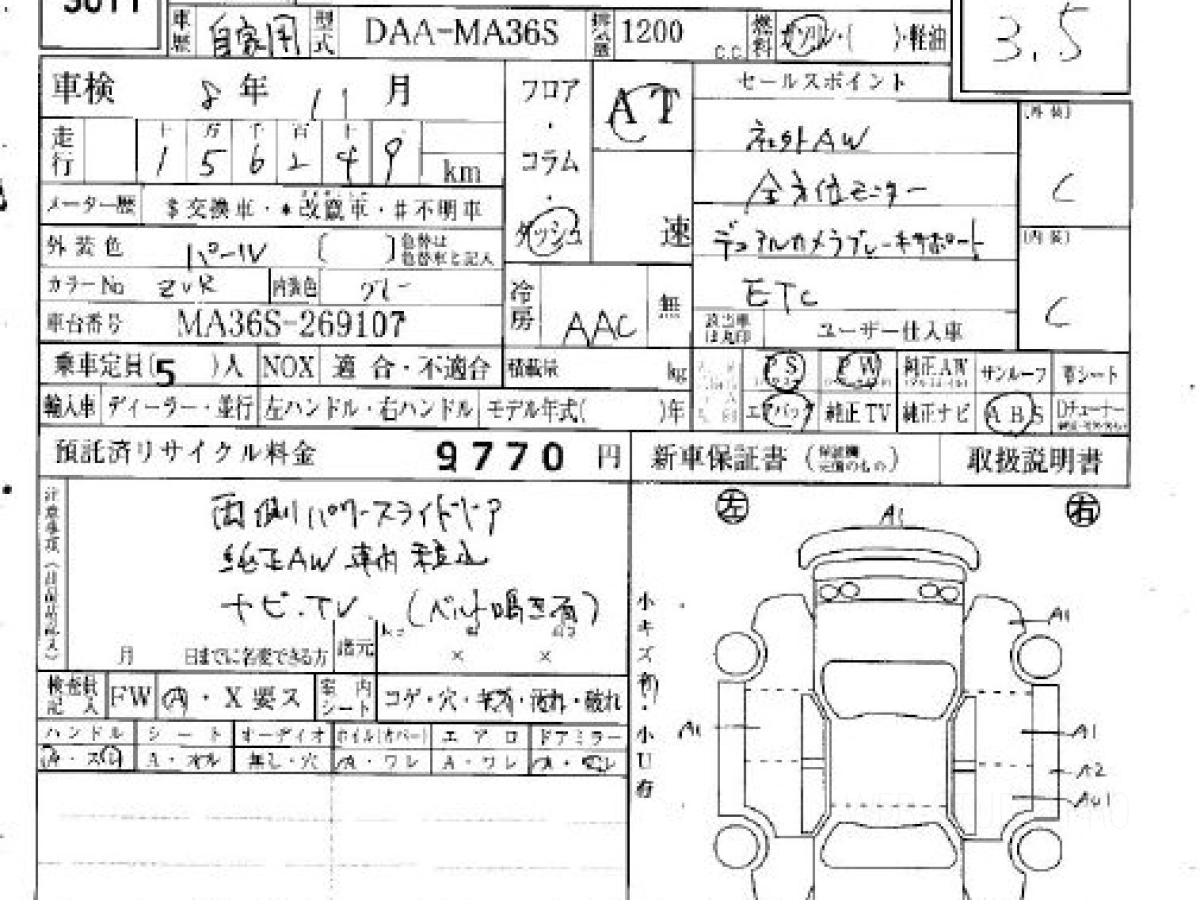 3011
車歴 自家用 型式 DAA-MA36S 排気量 1200 C.C. 燃料 ガソリン・( )・軽油
3.5
車検 8年 11月 フロア・コラム・ダッシュ AT 速 セールスポイント
走行 十 万 千 百 十
1 5 6 2 4 9 km
社外AW
全方位モニター
デュアルカメラブレーキサポート
ETC
(外装) C
(内装) C
メーター歴 $交換車・*改竄車・#不明車
外装色 パール ( ) 色替は色替車と記入
カラーNo ZVR 内装色 グレー
車台番号 MA36S-269107
冷房 AAC 無
該当車は丸印 ユーザー仕入車
乗車定員(5 )人 NOX 適合・不適合 積載量 kg
PS PW 純正AW サンルーフ 革シート
輸入車 ディーラー・並行 左ハンドル・右ハンドル モデル年式( )年
エアバッグ 純正TV 純正ナビ ABS Dチューナー
預託済リサイクル料金 9770 円 新車保証書 (保証欄記載のもの) 取扱説明書
両側パワースライドドア
純正AW車内積込
ナビ.TV. (ベルト鳴き有)
月 日までに名変できる方 諸元 × ×
検査員記入 FW A・X要ス 室内シート コゲ・穴・キズ・汚れ・破れ
ハンドル シート オーディオ ホイル(カバー) エアロ ドアミラー
A・スレ A・オル 無し・穴 A・ワレ A・ワレ A・ワレ
左 右
小キズ有
小U有
A1
A1
A1
A1
A2
AU1